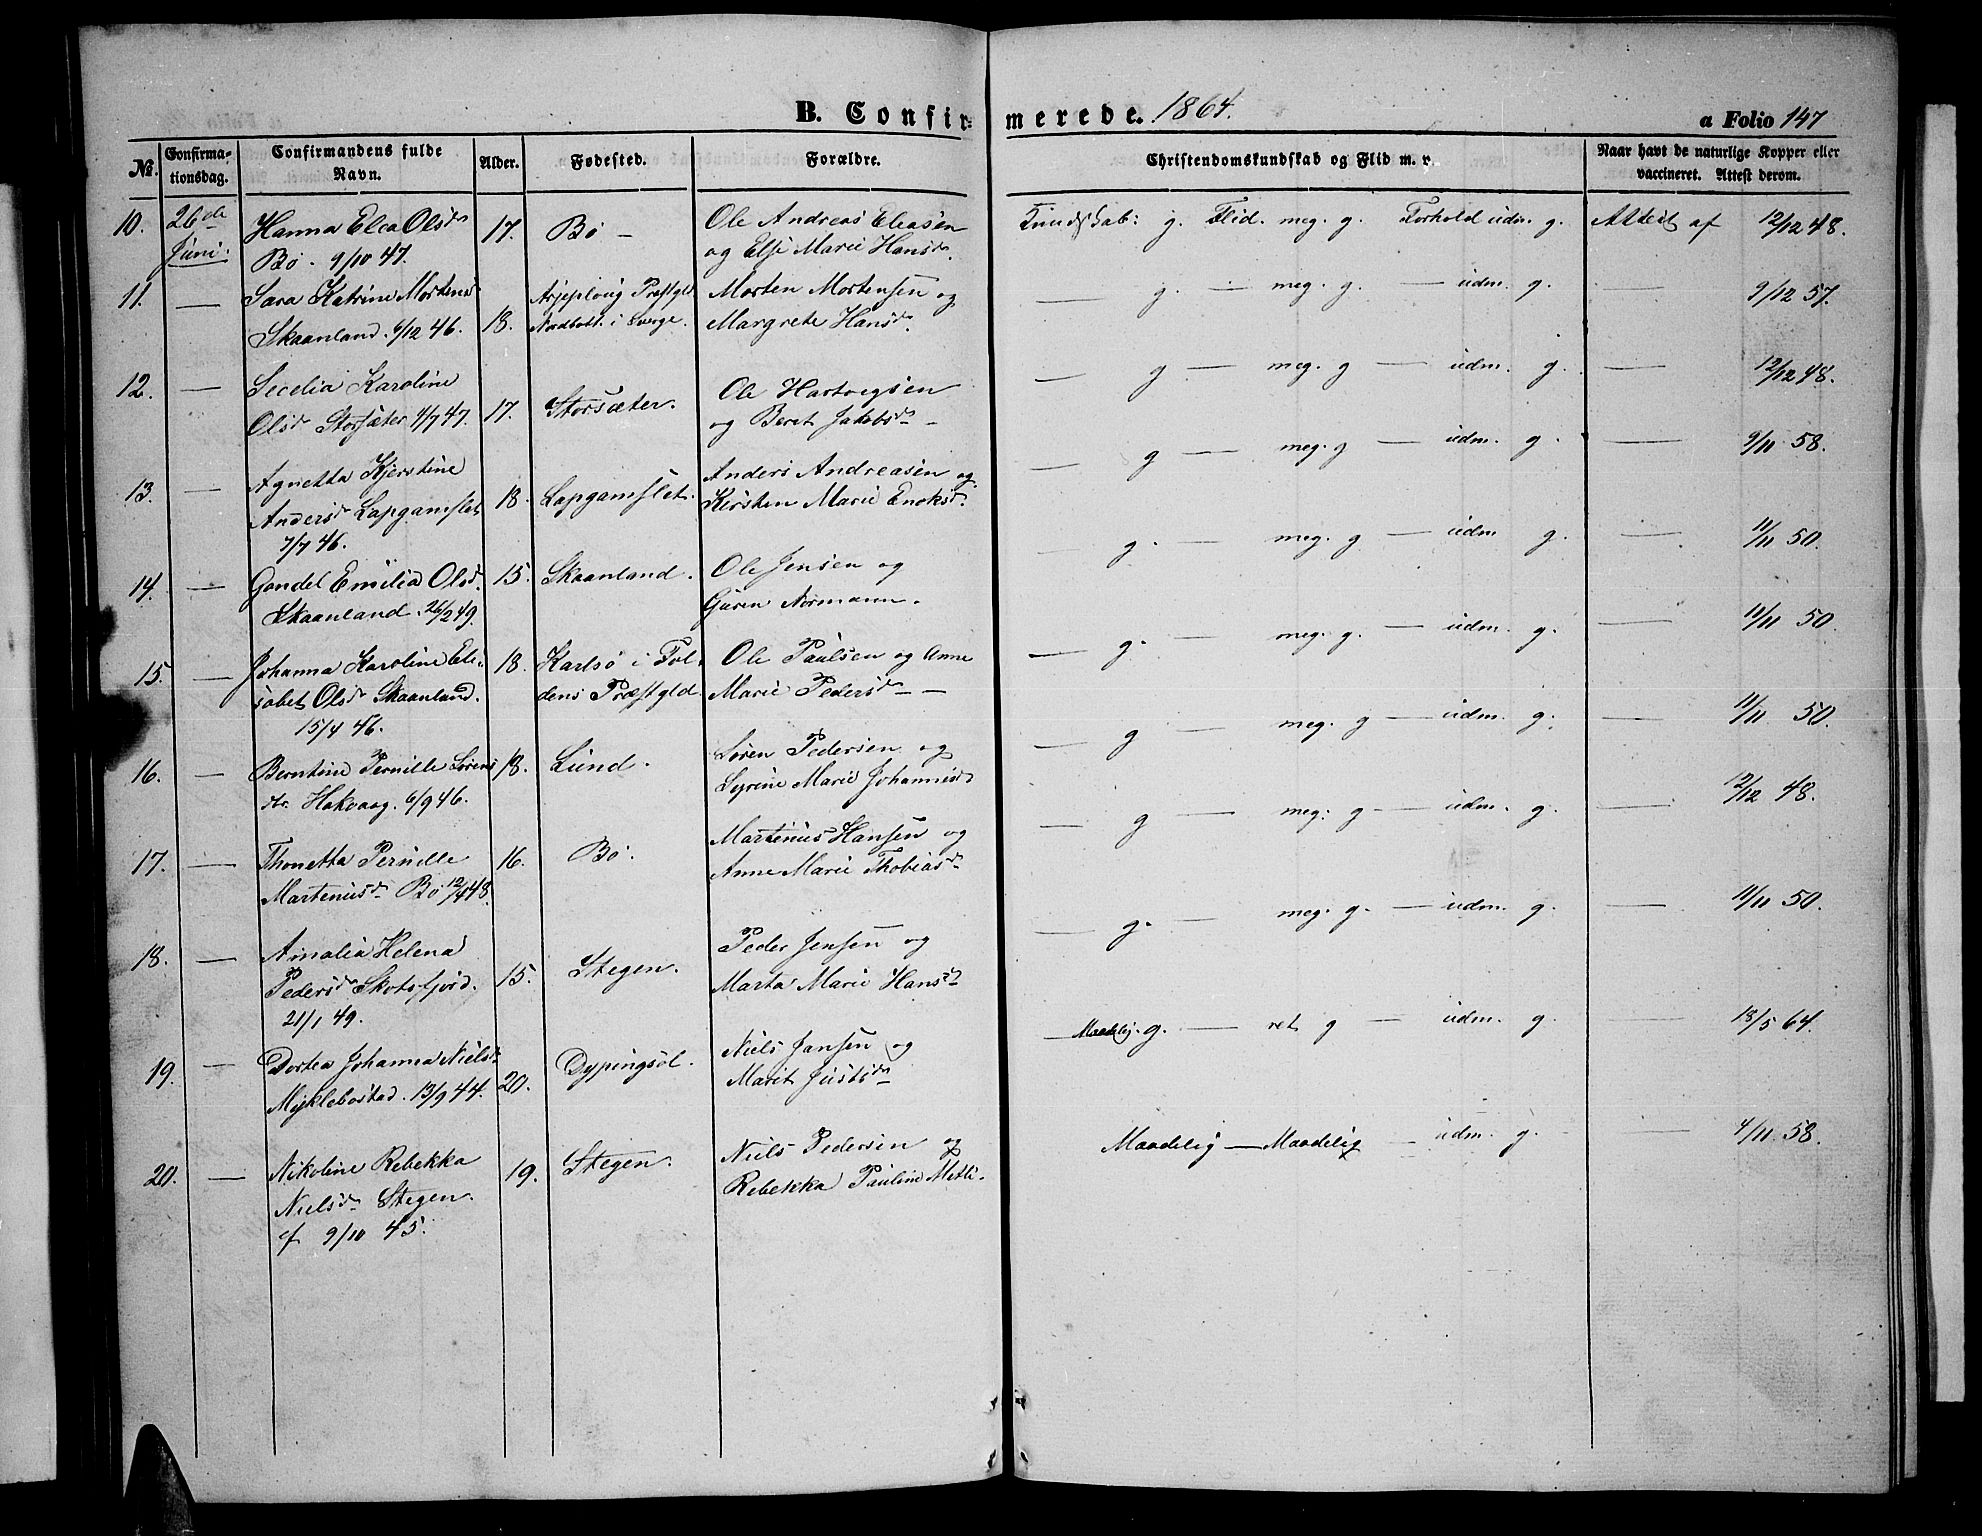 B. Confirmerede. 1864. a Folio 147
№. Confirmationsdag. Confirmandens fulde Navn. Alder. Fødested. Forældre. Christendomskundskab og Flid m. v. Naar havt de naturlige Kopper eller vaccineret. Attest derom.
10. 26de Juni. Hanna Elea Olsd. 17. Bø - Ole Andreas Eleasen Kundskab: g. Flid. meg. g. Forhold udm. g. Attest af 12/12 48.
Bø. 9/10 47. og Else Marie Hansd.
11. — Sara Katrine Mortensd. Arjeploug Præstgld. Morten Mortensen og — g. — meg. g. — udm. g. — 9/12 57.
Skaanland. 6/12 46. 18. Nordbott. i Sverge. Margrete Hansd.
12. — Secelia Karoline Ole Hartvigsen — g — meg. g — udm. g. — 12/12 48.
Olsd. Storsæter 4/7 47. 17. Storsæter. og Beret Jakobsd. -
13. — Agnetta Kjerstine 18. Lapgamslet. Anders Andreasen og — g — meg. g — udm. g. — 9/11 58.
Andersd. Lapgamslet Kirsten Marie Enoksd.
7/7 46.
14. — Gondel Emilia Olsd. 15. Skaanland. Ole Jensen og — g. — meg. g — udm g. — 11/11 50.
Skaanland. 26/2 49. Guren Normann.
15. — Johanna Karoline Eli- 18. Karlsö i Fol- Ole Paulsen og Anne — g. — meg. g. — udm. g. — 11/11 50.
sabet Olsd. Skaanland. dens Præstgld. Marie Pedersd. -
15/4 46.
16. — Berntine Pernille Sørens 18. Lund. Sören Pedersen og — g — meg. g — udm. g. — 11/11 50.
dtr. Hakvaag. 6/9 46. Syrine Marie Johannesd.
17. — Thonetta Pernille 16. Bø. Martenius Hansen og — g — meg. g — udm. g. — 12/12 48.
Marteniusd. Bø 12/4 48. Anne Marie Thobiasd.
18. — Amalia Helena Peder Jensen og — g. — meg. g. — udm. g. — 11/11 50.
Pedersd. Skotsfjord. 15. Stegen. Marta Marie Hansd.
21/1 49.
19. — Dortea Johanna Nielsd. Dypingsöl. Niels Jansen og — Maadelig. g. — ret g — udm. g — 18/5 64.
Myklebostad. 13/9 44. 20. Marit Justsd.
20. — Nikoline Rebekka 19. Stegen. Niels Pedersen og Maadelig — Maadelig — udm. g. — 4/11 58.
Nielsd. Stegen. Rebekka Pauline Metli.
f 9/10 45.